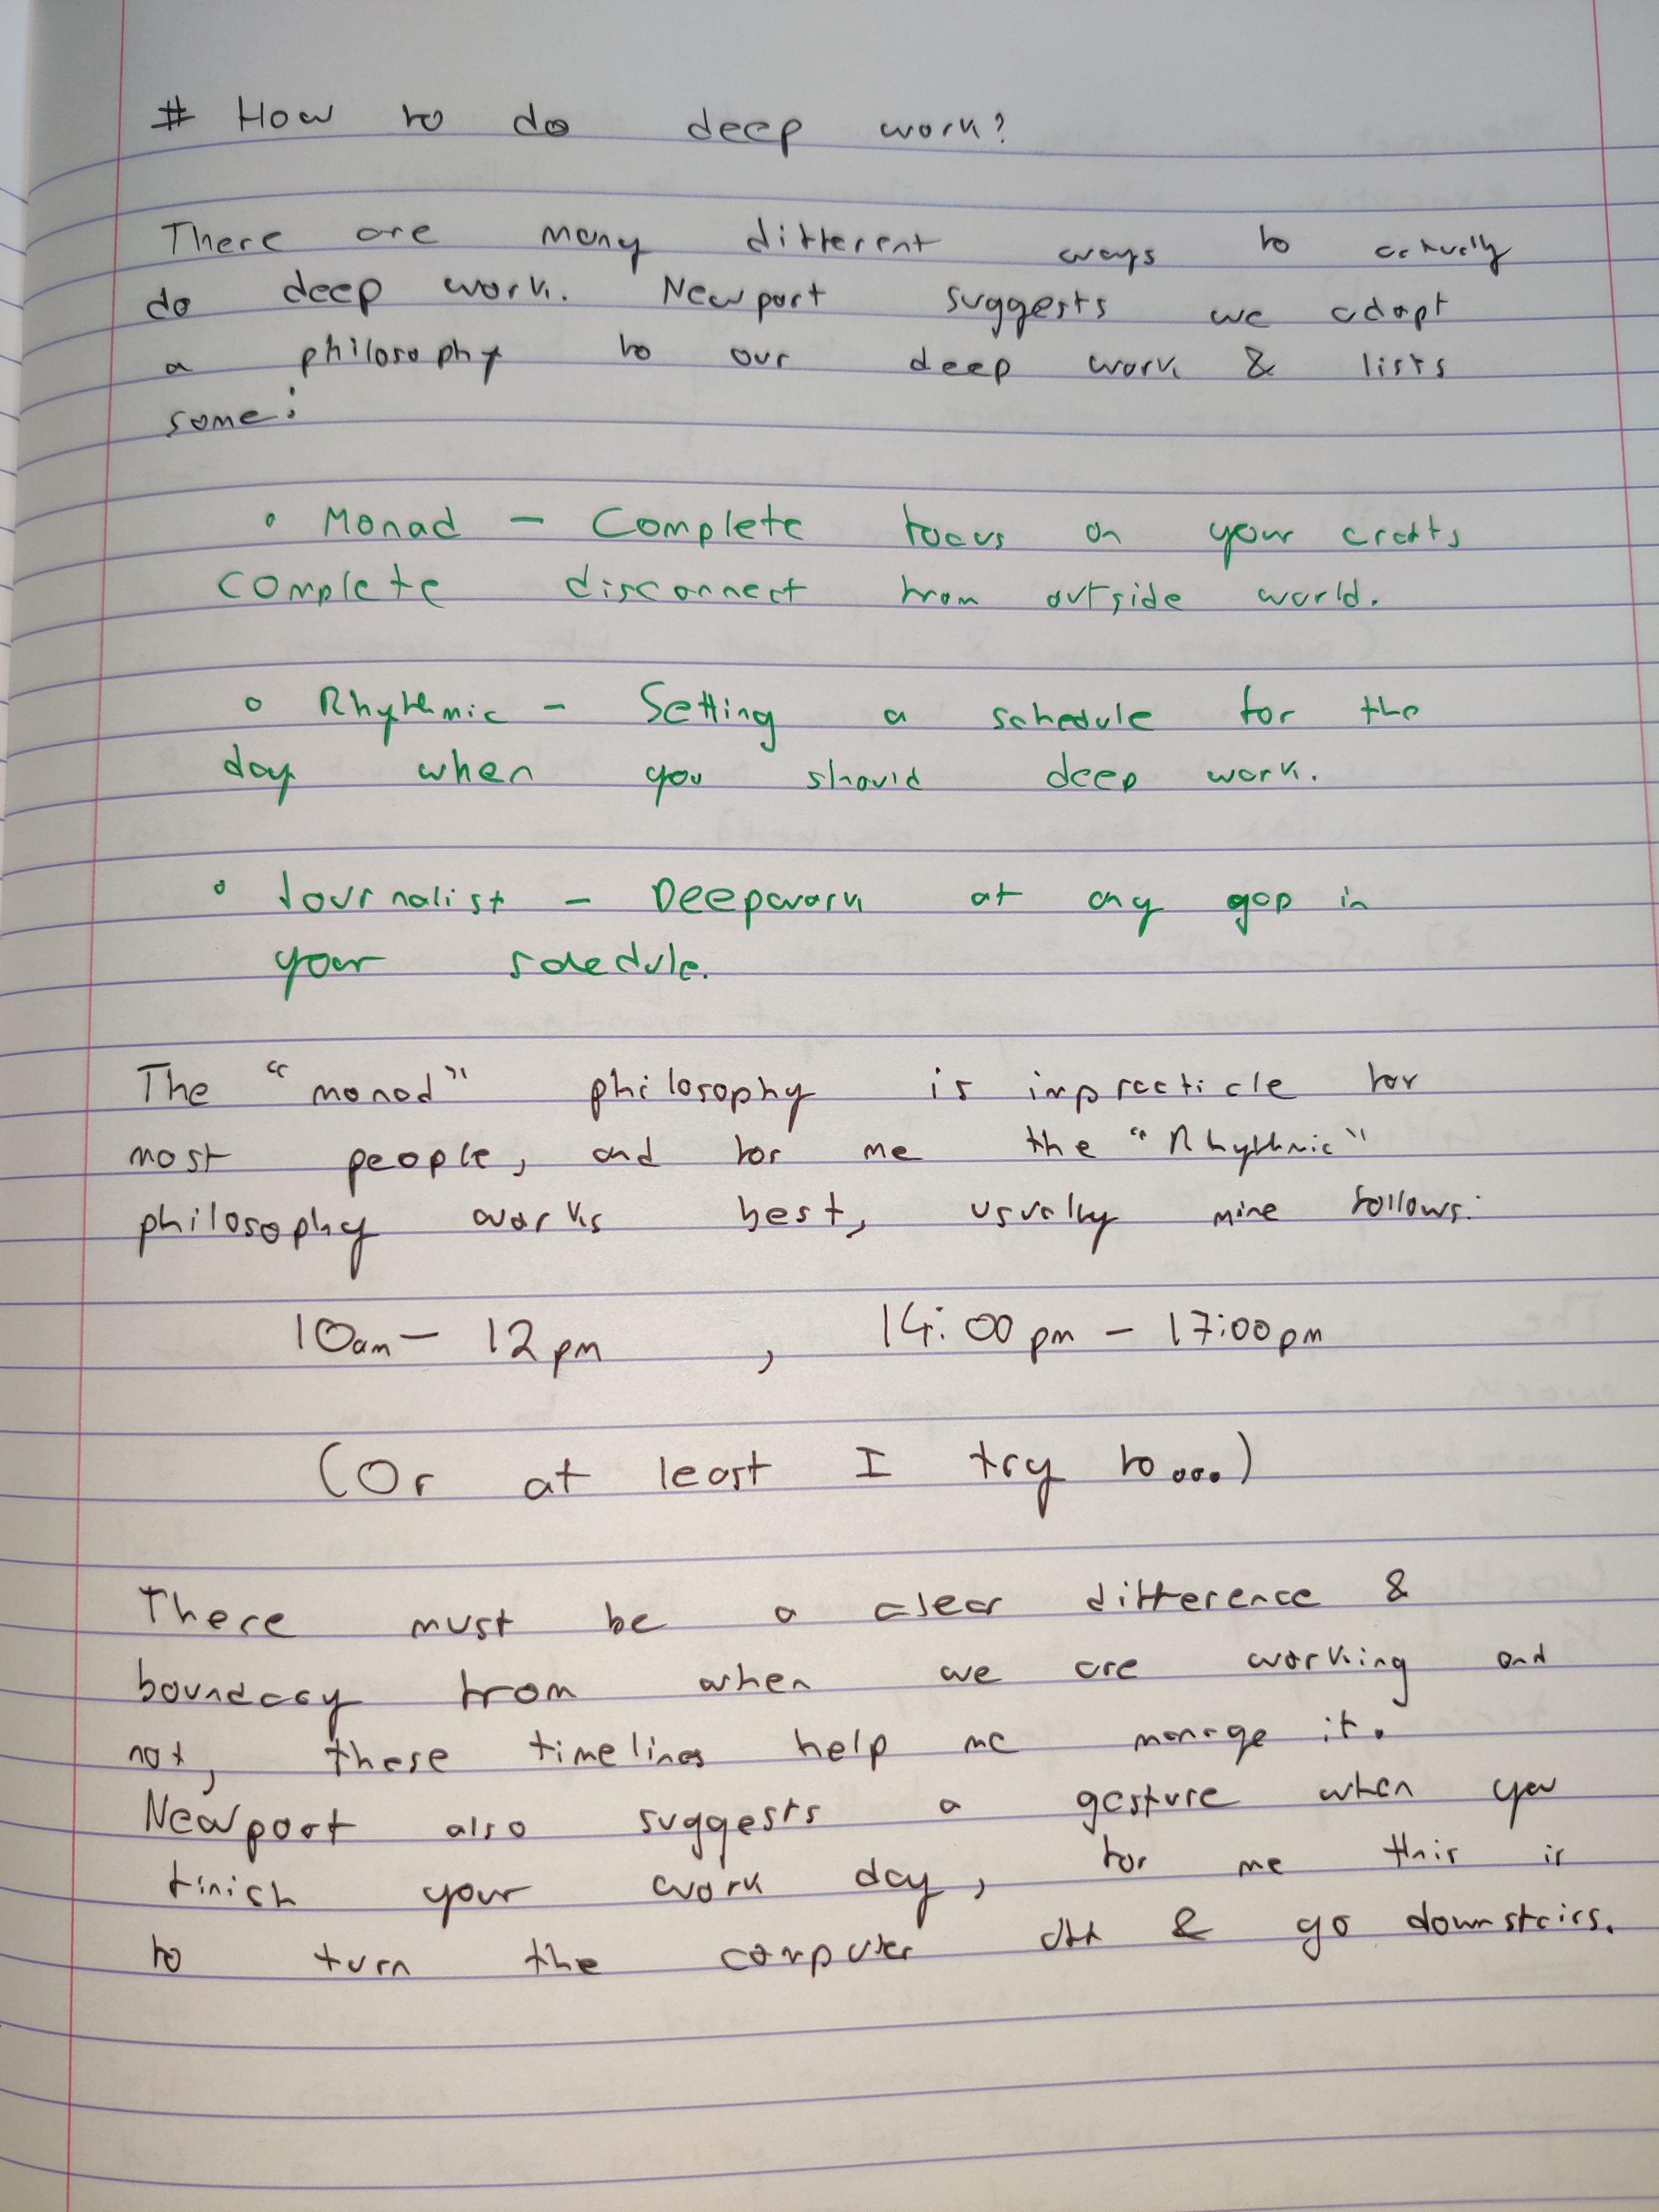 # How to do deep work?
There are many different ways to actually
do deep work. Newport suggests we adopt
a philosophy to our deep work & lists
some:
• Monad – Complete focus on your crafts
complete disconnect from outside world.
• Rhythmic – Setting a schedule for the
day when you should deep work.
• Journalist – Deepwork at any gap in
your schedule.
The "monad" philosophy is impracticle for
most people, and for me the "Rhythmic"
philosophy works best, usually mine follows:
10am – 12pm , 14:00pm – 17:00pm
(Or at least I try to...)
There must be a clear difference &
boundary from when we are working and
not, these timelines help me manage it.
Newport also suggests a gesture when you
finish your work day, for me this is
to turn the computer off & go downstairs.